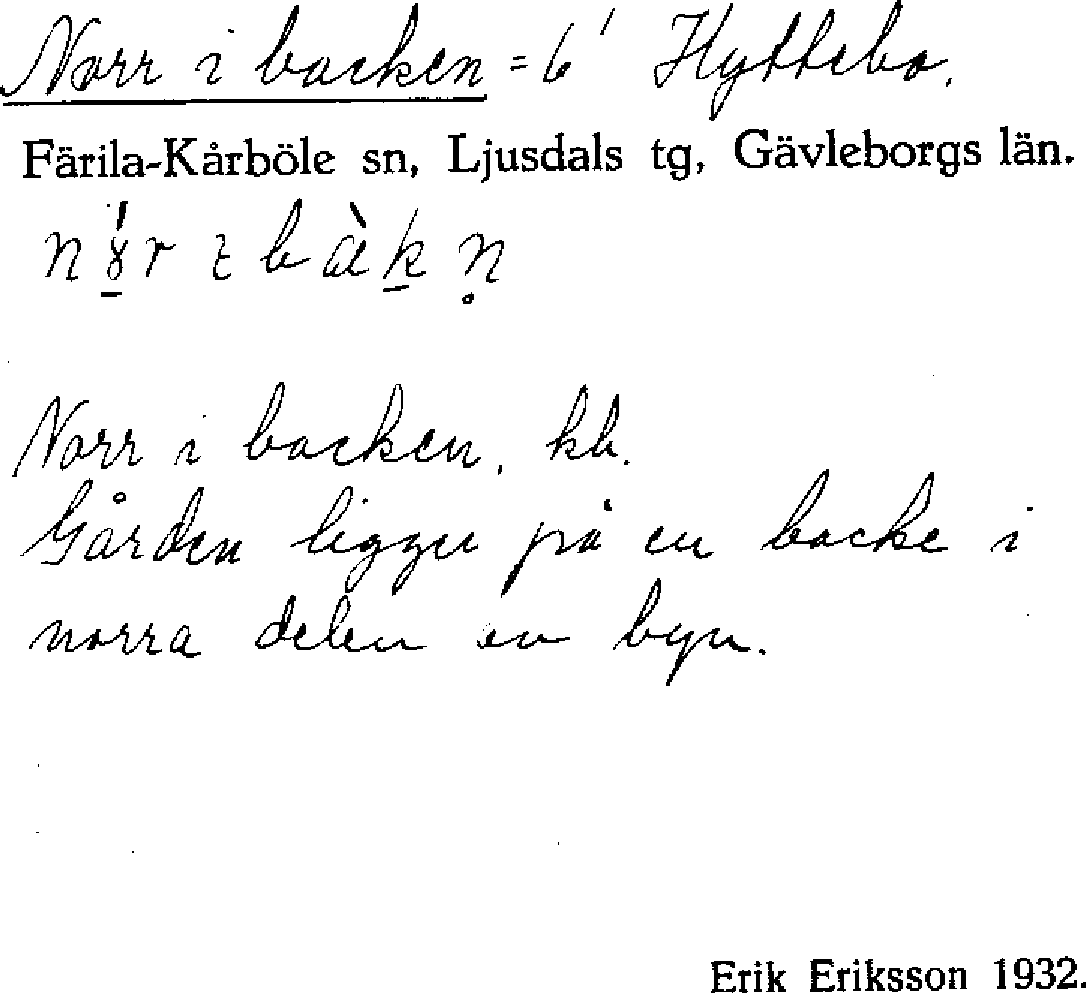 Norr i backen = 6¹ Hyttebo.
Färila-Kårböle sn, Ljusdals tg, Gävleborgs län.
Norr i backen, kb.
Gården ligger på en backe i
norra delen av byn.
Erik Eriksson 1932.